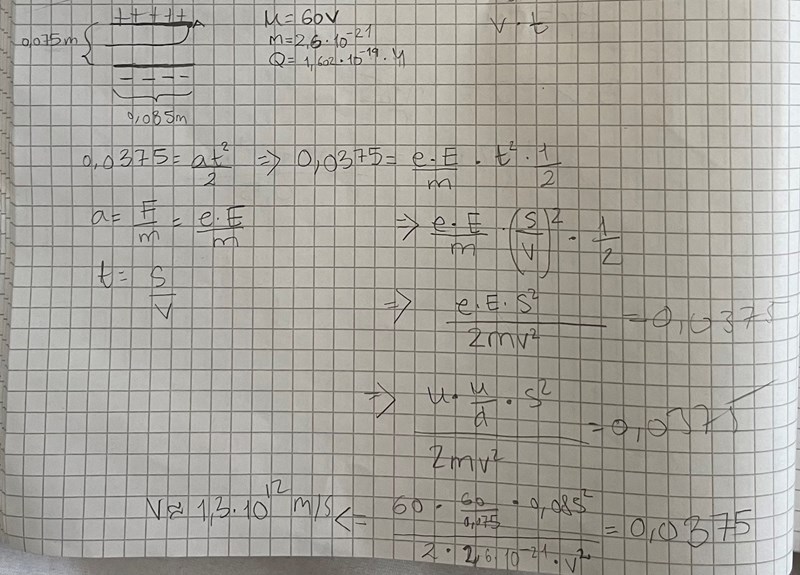 + + + + +
0,075m
– – – –
0,085m
U = 60V
m = 2,6 · 10^-21
Q = 1,602 · 10^-19 · 4
v · t
0,0375 = at²/2 ⇒ 0,0375 = e·E/m · t² · 1/2
a = F/m = e·E/m
⇒ e·E/m · (s/v)² · 1/2
t = s/v
⇒ e·E·s²/2mv² = 0,0375
⇒ u · u/d · s²/2mv² = 0,0375
v ≈ 1,3 · 10^12 m/s <= 60 · 60/0,075 · 0,085²/2 · 2,6·10^-21 · v² = 0,0375